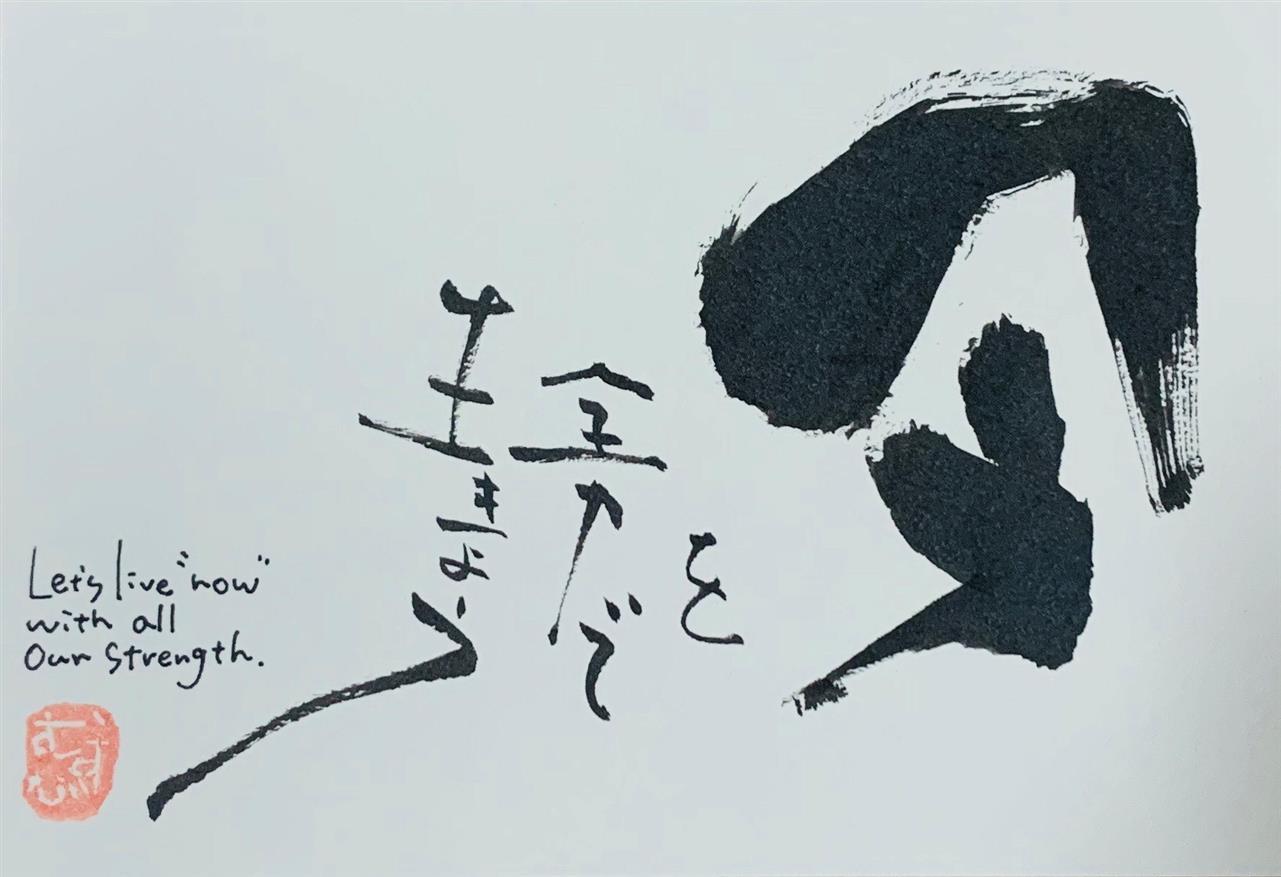 今
を
全力で
生きよう
Let's live "now"
with all
Our strength.